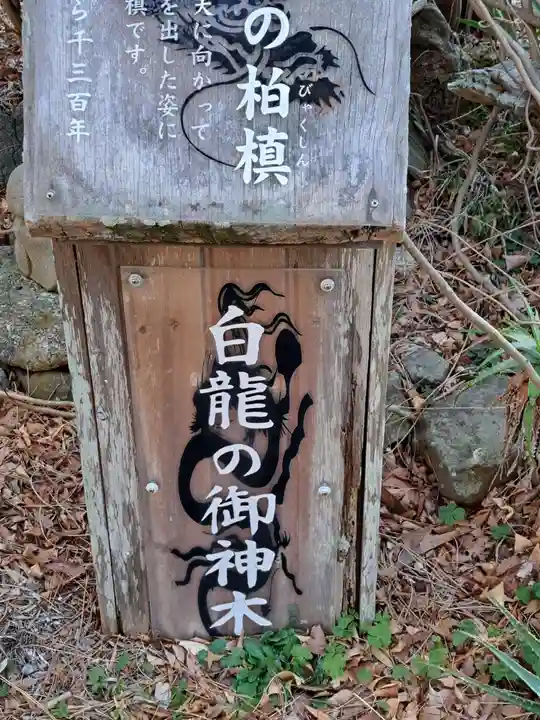 の柏槙
びゃくしん
天に向かって
を出した姿に
槙です。
ら千三百年
白龍の御神木